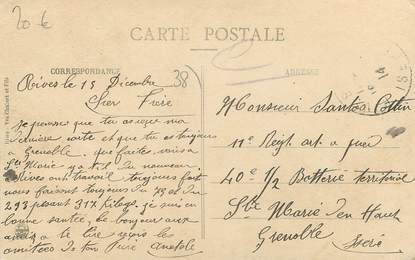 20 €
CARTE POSTALE
CORRESPONDANCE
ADRESSE
38
Rives le 15 Décembre
Cher Frère
Je pense que tu as reçu ma
dernière carte et que tu es toujours
à Grenoble que fais
Ste Marie y a-t-il du nouveau
Rives on travail toujours fait
nous faisons toujours du 75 et du
293 pesant 317 Kilogs je suis en
bonne santé, le bonjour aux
amis à te lire reçois les
amitiées de ton Frère Anatole
Monsieur Santos Cottin
11e Régt art à pied
40e 1/2 Batterie territorial
Ste Marie d'en Haut
Grenoble
Isère